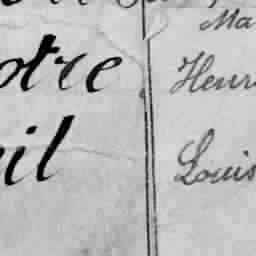 Ma
otre
Henri
il
Louis